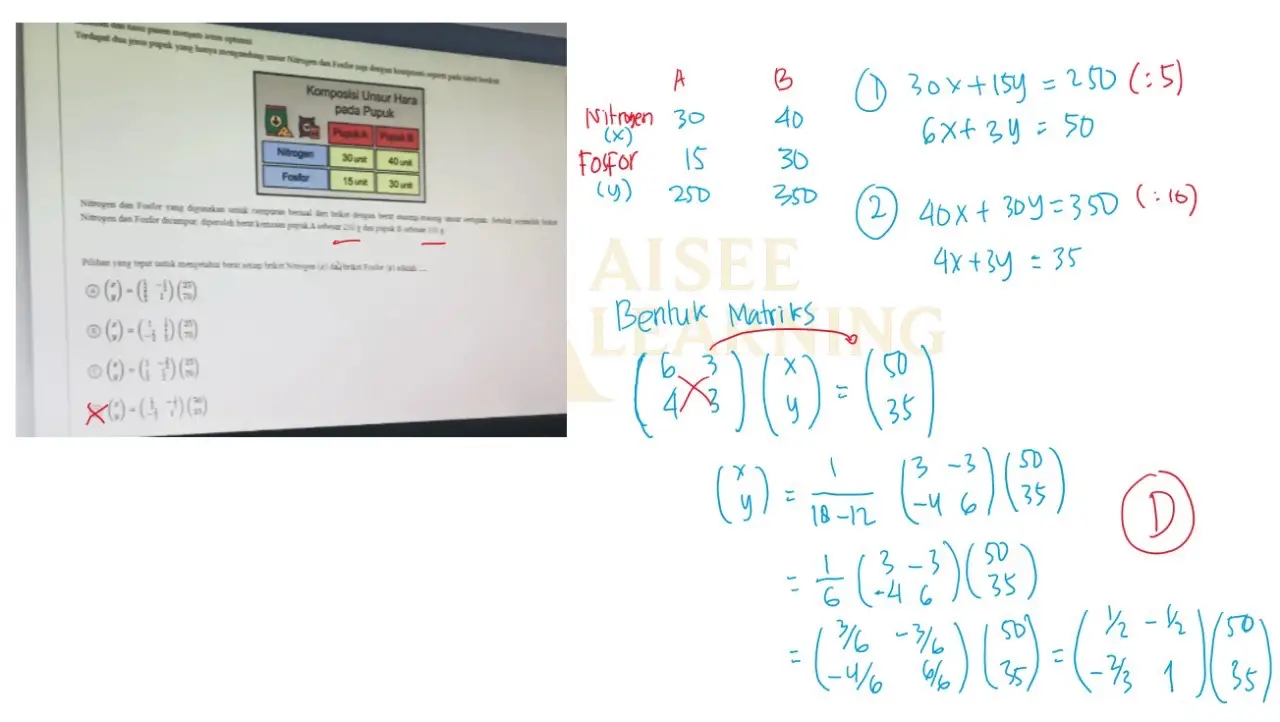 Terdapat dua jenis pupuk yang hanya mengandung unsur Nitrogen dan Fosfor saja dengan komposisi seperti pada tabel berikut
Komposisi Unsur Hara
pada Pupuk
Pupuk A Pupuk B
Nitrogen 30 unit 40 unit
Fosfor 15 unit 30 unit
Nitrogen dan Fosfor yang digunakan untuk campuran berasal dari briket dengan berat masing-masing unsur seragam. Setelah sejumlah briket
Nitrogen dan Fosfor dicampur, diperoleh berat kemasan pupuk A sebesar 250 g dan pupuk B sebesar 350 g.
Pilihan yang tepat untuk mengetahui berat setiap briket Nitrogen (x) dan briket Fosfor (y) adalah ....
A B
Nitrogen 30 40
(x)
Fosfor 15 30
(y) 250 350
① 30x + 15y = 250 (:5)
6x + 3y = 50
② 40x + 30y = 350 (:10)
4x + 3y = 35
AISEE
LEARNING
Bentuk Matriks
(6 3) (x) = (50)
(4 3) (y) (35)
(x) = 1 (3 -3) (50)
(y) 18-12 (-4 6) (35)
D
= 1/6 (3 -3) (50)
(-4 6) (35)
= (3/6 -3/6) (50) = (1/2 -1/2) (50)
(-4/6 6/6) (35) (-2/3 1) (35)